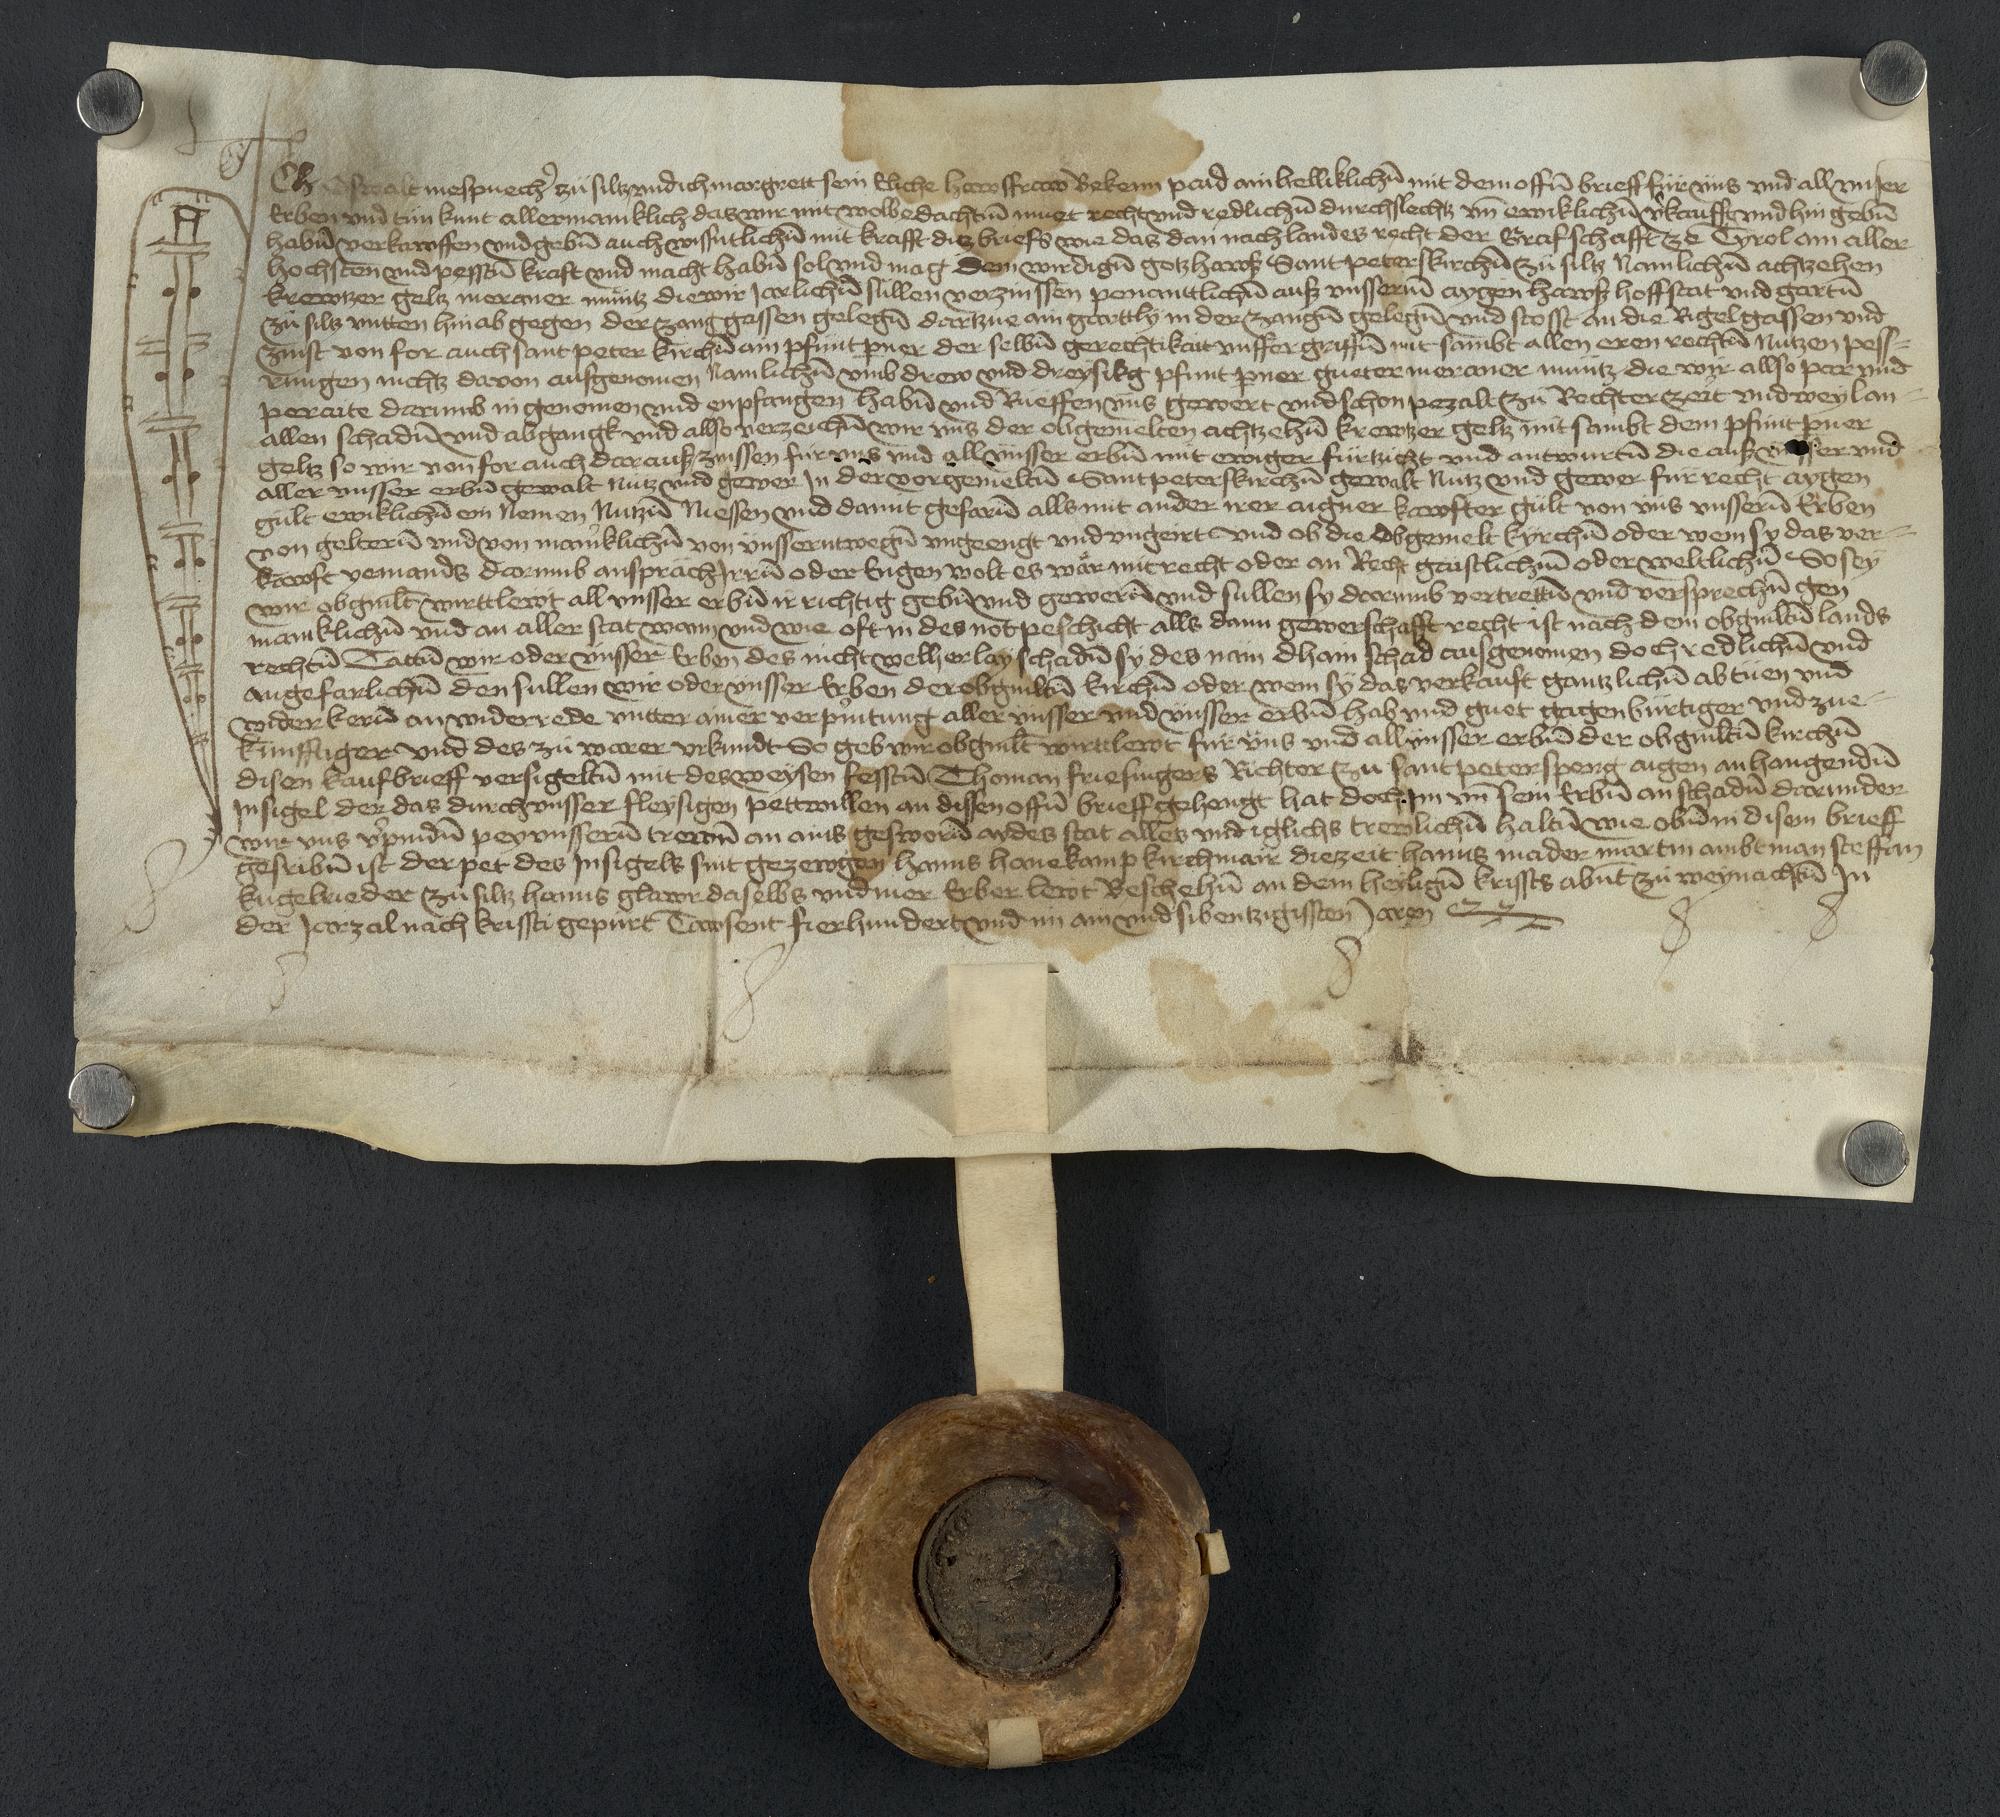 Ich Oswalt mespuecher zü siltz vnd ich margrett sein Eliche hawsfraw Bekenn paid ainhelliklichn̄ mit dem offn̄ brieff für vns vnd all vnser
Erben vnd tün kunt allermaniklich das wir mit wolbedachtn̄ muet recht vnd redlichn̄ durchslechtz vn̄ ewiklichn̄ v̉kaufft vnd hin gebn̄
habn̄ verkawffen vnd gebn̄ auch wissntlichn̄ mit krafft ditz briefs wie das dan nach landes recht der Grafschafft ze Tyrol am aller
hochsten vnd pesstn̄ kraft vnd macht habn̄ sol vnd mag dem wirdign̄ gotzhawß Sant peterskirchn̄ zü siltz Namlichn̄ achtzehen
krewtzer geltz meraner müntz die wir Jarlichn̄ süllen verzinssen penanttlichn̄ auß vnssern̄ aygen hawß hoffstat vnd gartn̄
zü siltz vntten hinab gegen der zanggassen gelegn̄ dartzue ain garttly in der zangn̄ gelegn̄ vnd stosst an die Rigelgassen vnd
zinst von for auch sant peter kirchn̄ ain pfunt pner der selbn̄ gerechtikait vnfforgriffn̄ mit sambt allen eren rechtn̄ Nutzen pess-
rungen nichtz davon ausgenomen Namlichn̄ vmb drew vnd dreysikg pfunt pner gueter meraner müntz die wir allso par vnd
peraite darumb in genomen vnd enpfangen habn̄ vnd Rueffen vns gewert vnd schon pezalt zü Rechter zeit vnd weyl an-
allen schadn̄ vnd abgangk vnd allso verzeichn̄ wir vns der obgemelten achtzehn̄ krewtzer geltz mit sambt dem pfunt pner
geltz so wir von for auch darauß zinssen für vns vnd all vnsser erbn̄ mit ewiger fürtzicht vnd antwurtn̄ die auß vnsser vnd
aller vnsser erbn̄ gewalt Nutz vnd gewer In der vorgemeltn̄ Sant peterskirchn̄ gewalt Nutz vnd gewer für recht aygen
gült ewiklichn̄ ein Nemen Nutzn̄ Niessen vnd damit gefarn̄ alls mit ander irer aigner kawfter gült von vns vnssern̄ Erben
von geltern̄ vnd von maniklichn̄ von vnsserntwegn̄ vngeengt vnd vngeirt vnd ob die Obgemelt kyrchn̄ oder wem sy das ver-
kawft yemands darumb ansprach Irrn̄ oder Engen wolt es wär mit recht oder an Recht gaistlichn̄ oder weltlichn̄ So sey
wir obgmlt wirttlewt all vnsser erbn̄ ir richtig gebn̄ vnd gewern̄ vnd süllen sy darumb vertrettn̄ vnd versprechn̄ gen
maniklichn̄ vnd an aller stat wann vnd wie oft in des not peschicht alls dann gewerschafft recht ist nach dem obgmltn̄ lands
rechtn̄ Tättn̄ wir oder vnsser Erben des nicht welherlay schadn̄ sy des nam dhain schad ausgenomen doch redlichn̄ vnd
angefarlichn̄ Den sullen wir oder vnsser Erben der obgmltn̄ kirchn̄ oder wem sy das verkauft gantzlichn̄ abtüen vnd
widerkern̄ an widerrede vntter ainer verpintung aller vnsser vnd vnsser erbn̄ hab vnd guet gagenbürtiger vnd zue-
künfftiger vnd des zü warer vrkundt So geb wir obgmlt wirttlewt für vns vnd all vnsser erbn̄ der obgmltn̄ kirchn̄
disen kaufbrieff versigeltn̄ mit des weysen fesstn̄ Thoman friesingers Richter zu sant petersperg aigen anhangendn̄
Insigel der das durch vnsser fleysigen pettwillen an dissen offn̄ brieff gehengt hat doch Im vn̄ sein Erbn̄ an schadn̄ darunder
wir vns v̉pindn̄ pey vnssern̄ trewn̄ an ains gesworn̄ aydes stat alles vnd iglichs trewlichn̄ haltn̄ wie obn̄ in disem brieff
gesribn̄ ist der pet des Insigels sint gezewgen hanns hanekamp kirchmair die zeit hanns mader martin ambtman steffan
kugelrieder zü siltz hanns glawr daselbs vnd mer Erber lewt Beschehn̄ an dem heylign̄ krissts abnt zü weynachtn̄ In
der Jarzal nach kristi gepurt Tawsent fierhundert vnd im ain vnd sibentzigissten Jaren